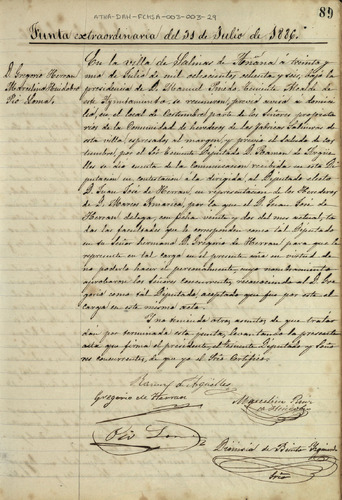 ATHA-DAH-FCHSA-003-003-29
89
Junta extraordinaria del 31 de Julio de 1886.
D. Gregorio Herran
Marcelino
Pio
En la villa de Salinas de Añana á treinta y
uno de Julio de mil ochocientos ochenta y seis, bajo la
presidencia de D. Manuel Alcalde de
este Ayuntamiento, se reunieron, previo aviso a domici-
lio, en el local de Costumbre, parte de los Señores propieta-
rios de la Comunidad de herederos de las fabricas Salineras de
esta villa, espresados al margen, y previo el saludo de cos-
tumbre, por el Sr. Diputado D. Ramon de
se dio cuenta de la Comunicacion recibida en esta Di-
putacion en contestacion á la dirigida al Diputado electo
D. Juan José de Herran, en representacion de los Herederos
de D. Marcos por la que el D. Juan José de
Herran delega, con fecha veinte y dos del mes actual, to-
das las facultades que le corresponden como tal Diputado
en su Señor hermano D. Gregorio de Herran para que le
represente en tal cargo en el presente año en virtud de
no poderlo hacer él personalmente, cuyo nombramiento
aprobaron los Señores Concurrentes, reconociendo al D. Gre-
gorio como tal Diputado, aceptado que fue por este el
cargo en este mismo acto.
Y no teniendo otros asuntos de que tratar
dan por terminada esta junta, levantando la presente
acta que firma el presidente, el teniente Diputado y Seño-
res concurrentes, de que yo el Srio Certifico.
Ramon de
Gregorio de Herran
Marcelino
Pio
Dionisial de
Srio